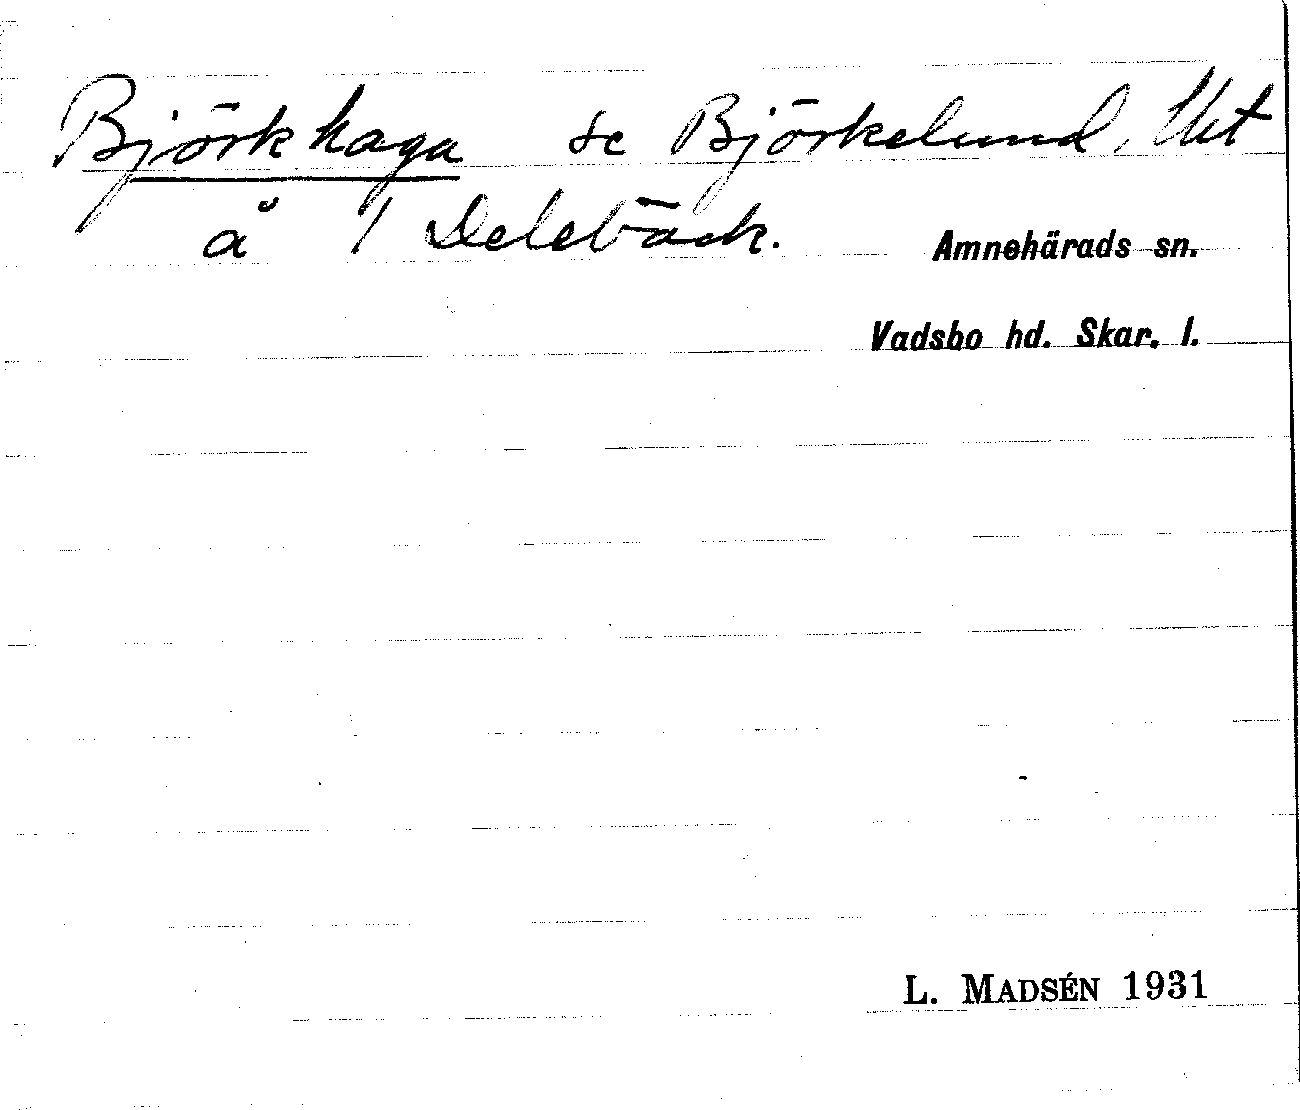 Björkhaga se Björkelund, Ukt
å 1 Delebäck.
Amnehärads sn.
Vadsbo hd. Skar. l.
L. MADSÉN 1931